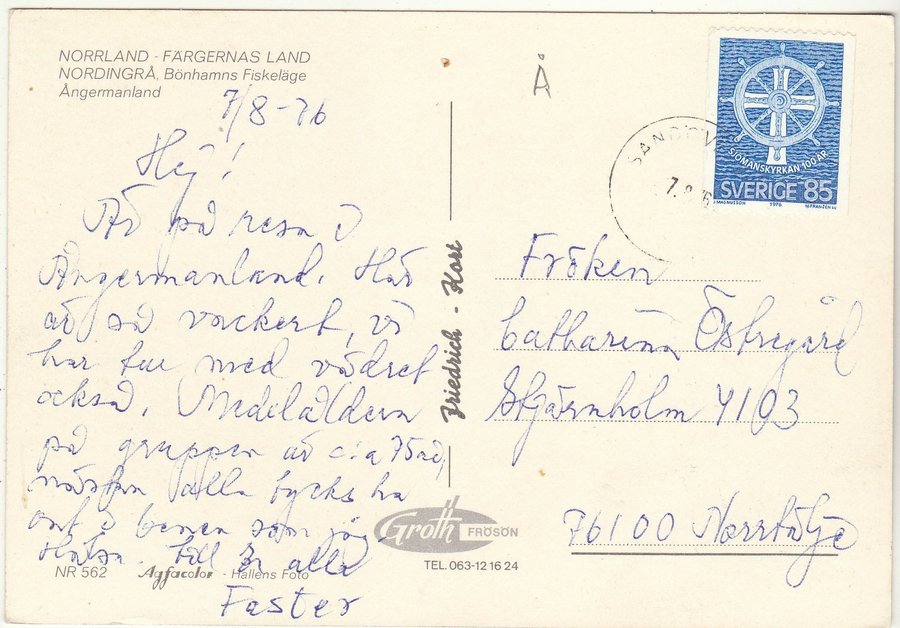 NORRLAND - FÄRGERNAS LAND
NORDINGRÅ, Bönhamns Fiskeläge
Ångermanland
7/8-76
Hej!
Är på resa i
Ångermanland. Här
är så vackert, vi
har tur med vädret
också. Medelåldern
på gruppen är c:a 75 år,
nästan alla tycks ha
ont i benen som jag
Hälsn. till Er alla
Faster
NR 562 Agfacolor - Hallens Foto
Friedrich - Kort
Groth FRÖSÖN
TEL. 063-12 16 24
Å
SJÖMANSKYRKAN 100 ÅR
SVERIGE 85
J. MAGNUSSON 1976 M. FRANZÉN SC
7. 8
Fröken
Catharina Östregård
Stjärnholm 4103
76100 Norrtälje